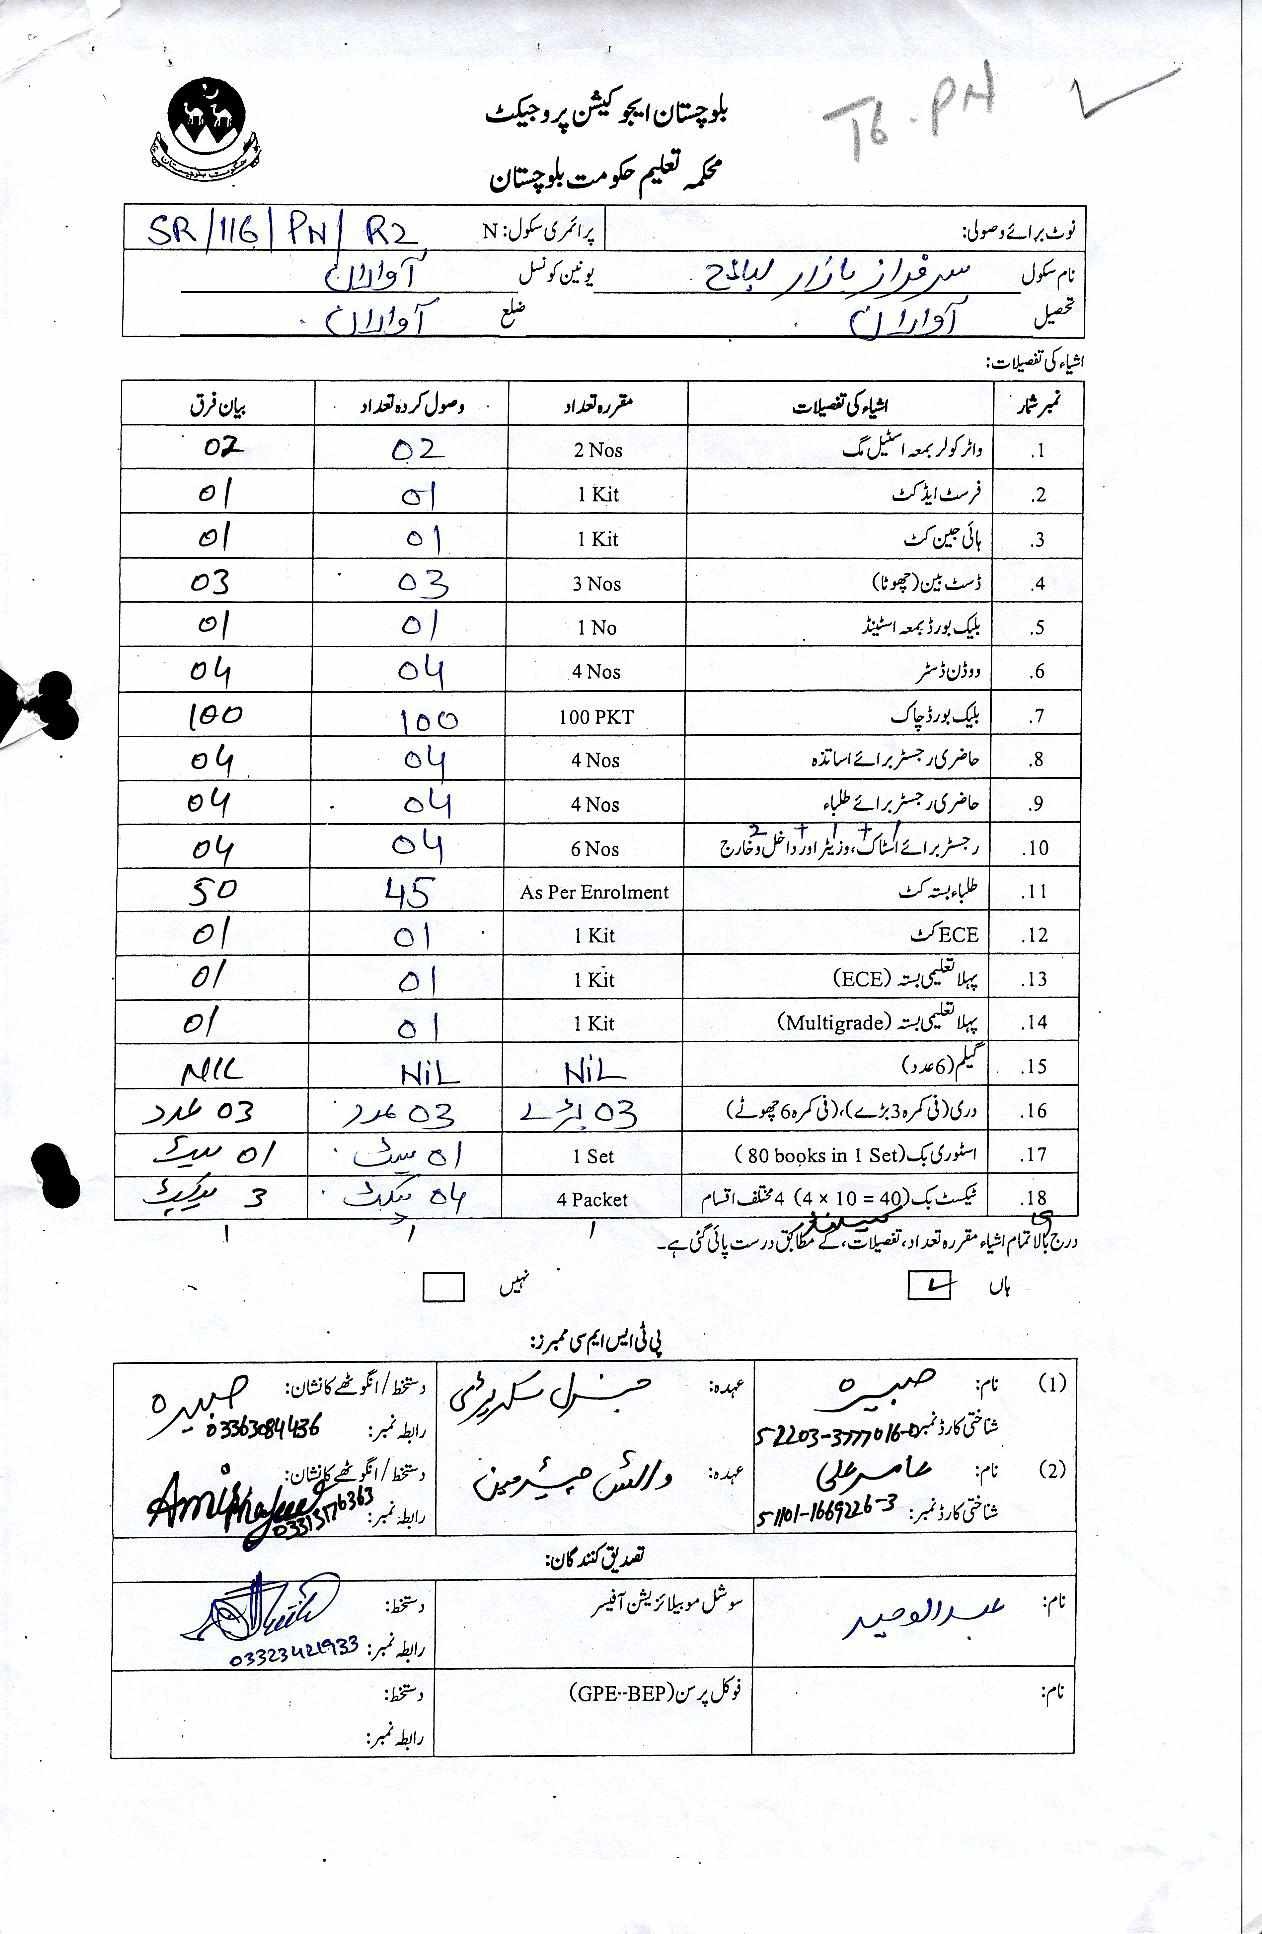 T6.PN
بلوچستان ایجوکیشن پروجیکٹ
محکمہ تعلیم حکومت بلوچستان
حکومت بلوچستان
نوٹ برائے وصولی: پرائمری سکول: N SR/116/PN/R2
نام سکول سرفراز بازار لباچ یونین کونسل آواران
تحصیل آواران ضلع آواران
اشیاء کی تفصیلات:
نمبر شمار اشیاء کی تفصیلات مقررہ تعداد وصول کردہ تعداد بیان فرق
1. واٹر کولر بمعہ اسٹیل مگ 2 Nos 02 02
2. فرسٹ ایڈ کٹ 1 Kit 01 01
3. ہائی جین کٹ 1 Kit 01 01
4. ڈسٹ بین (چھوٹا) 3 Nos 03 03
5. بلیک بورڈ بمعہ اسٹینڈ 1 No 01 01
6. ووڈن ڈسٹر 4 Nos 04 04
7. بلیک بورڈ چاک 100 PKT 100 100
8. حاضری رجسٹر برائے اساتذہ 4 Nos 04 04
9. حاضری رجسٹر برائے طلباء 4 Nos 04 04
1 + 1 + 2
10. رجسٹر برائے اسٹاک، وزیٹر اور داخل و خارج 6 Nos 04 04
11. طلباء بستہ کٹ As Per Enrolment 45 50
12. ECE کٹ 1 Kit 01 01
13. پہلا تعلیمی بستہ (ECE) 1 Kit 01 01
14. پہلا تعلیمی بستہ (Multigrade) 1 Kit 01 01
15. گیلم (6 عدد) NiL NiL NIL
16. دری (فی کمرہ 3 بڑے)، (فی کمرہ 6 چھوٹے) 03 بڑے 03 عدد 03 عدد
17. اسٹوری بک (80 books in 1 Set) 1 Set 01 سیٹ 01 سیٹ
18. ٹیکسٹ بک (4 x 10 = 40) 4 مختلف اقسام 4 Packet 04 پیکٹ 3 پیکیٹ
درج بالا تمام اشیاء مقررہ تعداد، تفصیلات، کے مطابق درست پائی گئی ہے۔
ہاں نہیں
پی ٹی ایس ایم سی ممبرز:
(1) نام: صبیرہ عہدہ: جنرل سکریٹری دستخط/انگوٹھے کا نشان: صبیرہ
شناختی کارڈ نمبر: 52203-3777016-0 رابطہ نمبر: 03363084436
(2) نام: عامر علی عہدہ: وائس چیئرمین دستخط/انگوٹھے کا نشان:
شناختی کارڈ نمبر: 51101-1669226-3 رابطہ نمبر: 03313176363
تصدیق کنندگان:
نام: عبدالوحید سوشل موبیلائزیشن آفیسر دستخط:
رابطہ نمبر: 03323421933
نام: فوکل پرسن (GPE--BEP) دستخط:
رابطہ نمبر: